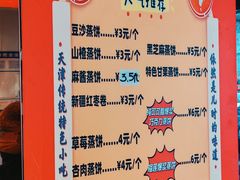 人气推荐
豆沙蒸饼……¥3元/个
山楂蒸饼……¥3元/个
麻酱蒸饼……¥3.5/个
新疆红枣卷……¥3元/个
草莓蒸饼……4元/个
杏肉蒸饼……¥4元/个
黑芝麻蒸饼……¥5元/个
特色甘栗蒸饼…¥5元/个
巧克力蒸饼
5元/个
榴莲爆浆蒸饼
6元/个
天津传统特色小吃
依然是儿时的味道